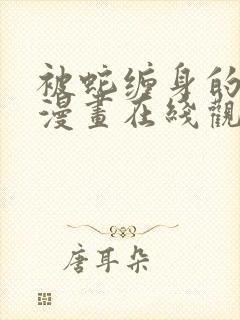 被蛇缠身的
漫畫在綫觀
唐耳朵